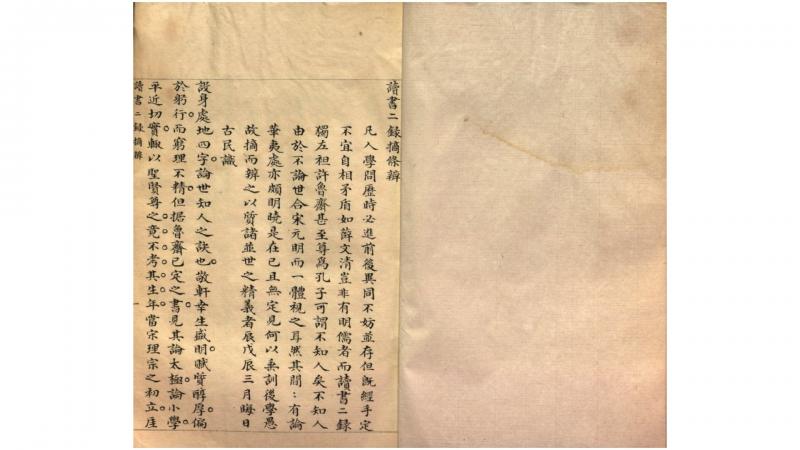 讀書二錄摘條辨
凡人學問歷時必進前後異同不妨並存但既經手定
不宜自相矛盾如薛文清豈非有明儒者而讀書二錄
獨左袒許魯齋甚至尊為孔子可謂不知人矣不知人
由於不論世合宋元明而一體視之耳然其間:有論
華夷處亦頗明曉是在已且無定見何以垂訓後學愚
故摘而辨之以質諸並世之精義者辰戊辰三月晦日
古民識
設身處地四字論世知人之訣也敬軒幸生盛明賦質醇厚偏
於躬行而窮理不精但据魯齋已定之書見其論太極論小學
平近切實輒以聖賢尊之竟不考其生年當宋理宗之初立崖
讀書二錄摘辨 一